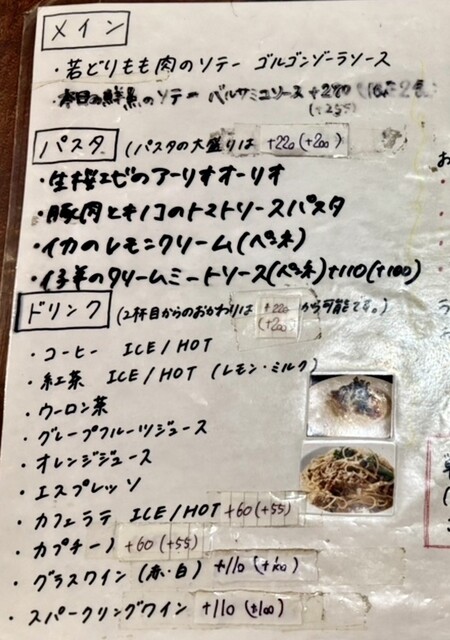 メイン
・若どりもも肉のソテー ゴルゴンゾーラソース
・本日の鮮魚のソテー バルサミコソース +280
(+255)
パスタ (パスタの大盛りは +220(+200)
・生桜エビのアーリオオーリオ
・豚肉とキノコのトマトソースパスタ
・イカのレモンクリーム(ペンネ)
・仔羊のクリームミートソース(ペンネ)+110(+100)
ドリンク (2杯目からのおかわりは +220 から可能です。)
(+200)
・コーヒー ICE/HOT
・紅茶 ICE/HOT (レモン・ミルク)
・ウーロン茶
・グレープフルーツジュース
・オレンジジュース
・エスプレッソ
・カフェラテ ICE/HOT +60(+55)
・カプチーノ +60(+55)
・グラスワイン (赤・白) +110(+100)
・スパークリングワイン +110(+100)